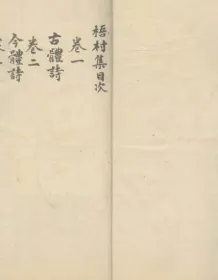 梧村集目次
卷一
古體詩
卷二
今體詩